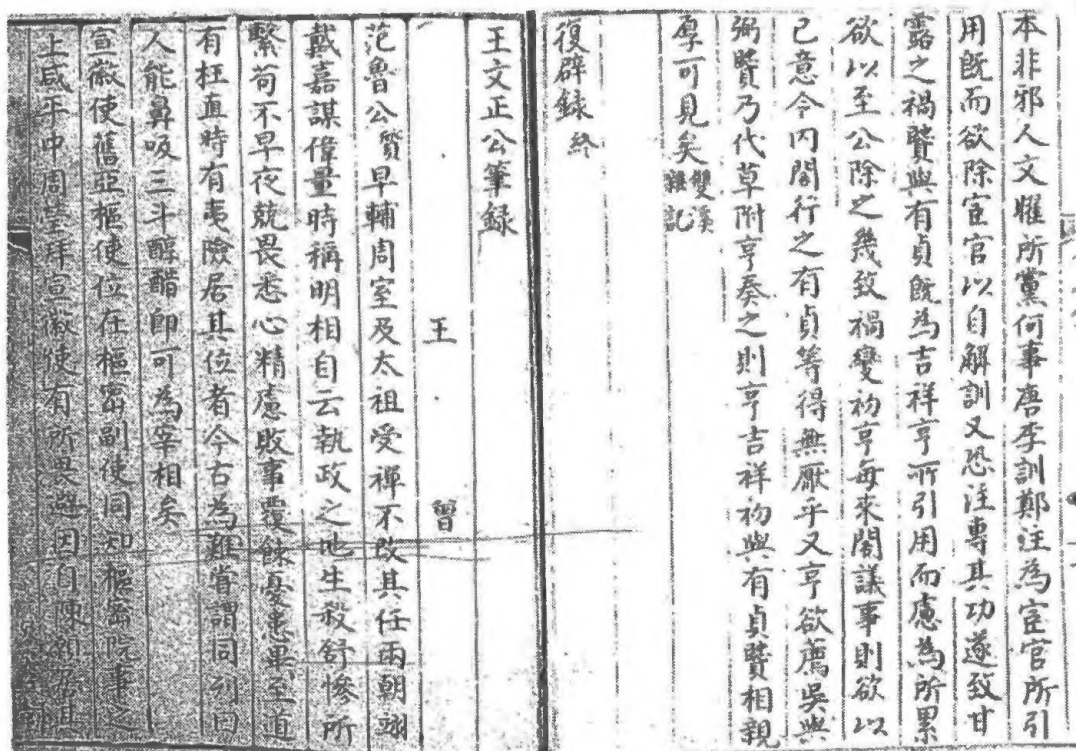 本非邪人文雖所黨何事唐李訓鄭注為宦官所引
用既而欲除宦官以自解訓又恐注專其功遂致甘
露之禍贒與有貞既為吉祥亨所引用而慮為所累
欲以至公除之幾致禍變初亨每來閣議事則欲以
已意令內閣行之有貞等得無厭乎又亨欲薦吳與
弼贒乃代草附亨奏之則亨吉祥初與有貞贒相親
厚可見矣雙溪雜記
復辟錄終
王文正公筆録
王曾
范魯公質早輔周室及太祖受禪不改其任兩朝翊
戴嘉謀偉量時稱明相自云執政之地生殺舒慘所
繫苟不早夜兢畏悉心精慮敗事覆餗憂患畢至道
有枉直時有夷險居其位者今古為難嘗謂同列曰
人能鼻吸三斗醇醋即可為宰相矣
宣徽使舊亞樞使位在樞密副使同知樞密院事之
上咸平中周瑩拜宣徽使有所畏避因自陳